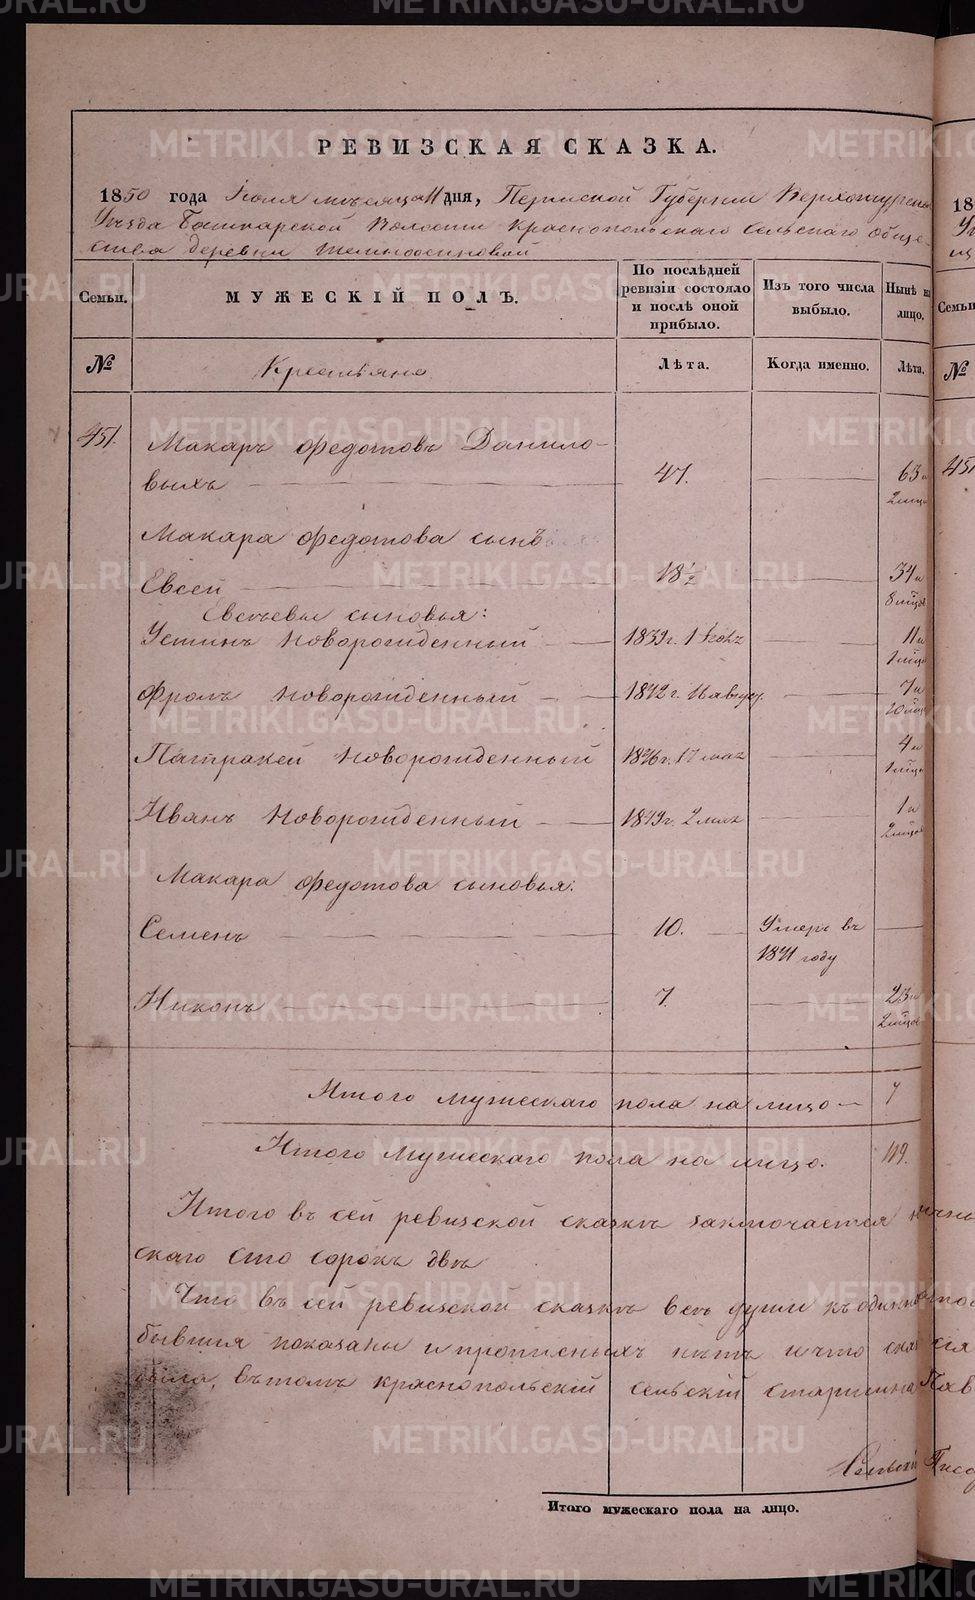 РЕВИЗСКАЯ СКАЗКА.
1850 года Іюля мѣсяца 11 дня, Пермской Губерніи Верхотурска
Уѣзда Башкарской Волости Краснопольскаго Сельскаго Обще-
ства деревни Темноосиновой
Семьи.
МУЖЕСКІЙ ПОЛЪ.
По послѣдней ревизіи состояло и послѣ оной прибыло.
Изъ того числа выбыло.
Нынѣ на лицо.
Семьи
№
Крестьяне
Лѣта.
Когда именно.
Лѣта.
№
451.
Макаръ Федотовъ Данило-
выхъ 47. 63 и
2 мѣца
Макара Федотова сынъ
Евсей 18½ 34 и
8 мѣцов
Евсѣевы сыновья:
Устинъ новорожденный 1839 г. 1 11 и
1 мѣца
Фролъ новорожденный 1842 г. 7 и
10 мѣц
Патракей новорожденный 1846 г. 17 мая 4 и
1 мѣца
Иванъ новорожденный 1849 г. 2 мая 1 и
2 мѣцов
Макара Федотова сыновья:
Семенъ 10. Умеръ въ
1841 году
Никонъ 7. 23 и
2 мѣцов
Итого мужескаго пола на лицо 7
Итого Мужескаго пола на лицо.
Итого въ сей ревизской сказкѣ заключается
скаго сто сорокъ двѣ
Что въ сей ревизской сказкѣ всѣ души къ
бывшія показаны и прописныхъ нѣтъ и что
въ томъ Краснопольскій сельскій старшина Пав
Сельскій Писа
Итого мужескаго пола на лицо.
METRIKI.GASO-URAL.RU